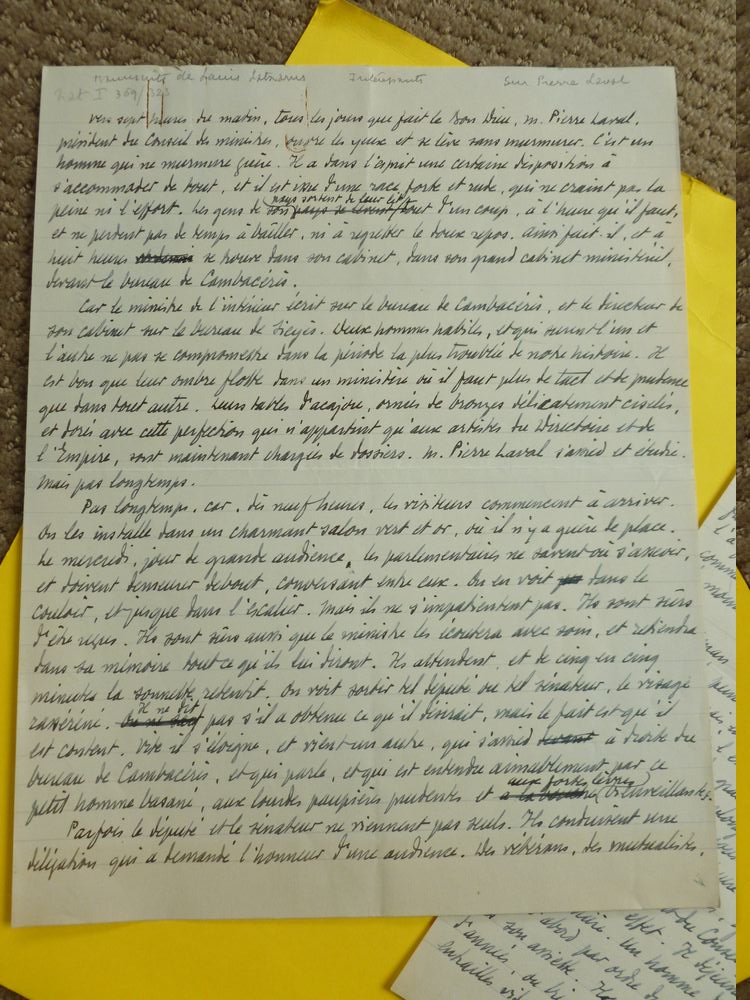 Manuscrits de Louis Latzarus Intéressants Sur Pierre Laval
Lat I 369/323
Vers sept heures du matin, tous les jours que fait le Bon Dieu, M. Pierre Laval,
président du Conseil des ministres, ouvre les yeux et se lève sans murmurer. C'est un
homme qui ne murmure guère. Il a dans l'esprit une certaine disposition à
s'accommoder de tout, et il est issu d'une race forte et rude, qui ne craint pas la
peine ni l'effort. Les gens de son pays sortent de leur lit tout d'un coup, à l'heure qu'il faut,
et ne perdent pas de temps à bâiller, ni à regretter le doux repos. Ainsi fait-il, et à
huit heures se trouve dans son cabinet, dans son grand cabinet ministériel,
devant le bureau de Cambacérès.
Car le ministre de l'intérieur écrit sur le bureau de Cambacérès, et le directeur de
son cabinet sur le bureau de Sieyès. Deux hommes habiles, et qui surent l'un et
l'autre ne pas se compromettre dans la période la plus troublée de notre histoire. Il
est bon que leur ombre flotte dans un ministère où il faut plus de tact et de prudence
que dans tout autre. Leurs tables d'acajou, ornées de bronzes délicatement ciselés,
et dorés avec cette perfection qui n'appartint qu'aux artistes du Directoire et de
l'Empire, sont maintenant chargées de dossiers. M. Pierre Laval s'assied et étudie.
Mais pas longtemps.
Pas longtemps, car, dès neuf heures, les visiteurs commencent à arriver.
On les installe dans un charmant salon vert et or, où il n'y a guère de place.
Le mercredi, jour de grande audience, les parlementaires ne savent où s'asseoir,
et doivent demeurer debout, conversant entre eux. On en voit dans le
couloir, et jusque dans l'escalier. Mais ils ne s'impatientent pas. Ils sont sûrs
d'être reçus. Ils sont sûrs aussi que le ministre les écoutera avec soin, et retiendra
dans sa mémoire tout ce qu'ils lui diront. Ils attendent, et de cinq en cinq
minutes la sonnette retentit. On voit sortir tel député ou tel sénateur, le visage
rasséréné. Il ne dit pas s'il a obtenu ce qu'il désirait, mais le fait est qu'il
est content. Vite il s'éloigne, et vient un autre, qui s'assied à droite du
bureau de Cambacérès, et qui parle, et qui est entendu aimablement par ce
petit homme basané, aux lourdes paupières prudentes et aux fortes lèvres bienveillantes.
Parfois le député et le sénateur ne viennent pas seuls. Ils conduisent une
délégation qui a demandé l'honneur d'une audience. Des vétérans, des mutualistes,